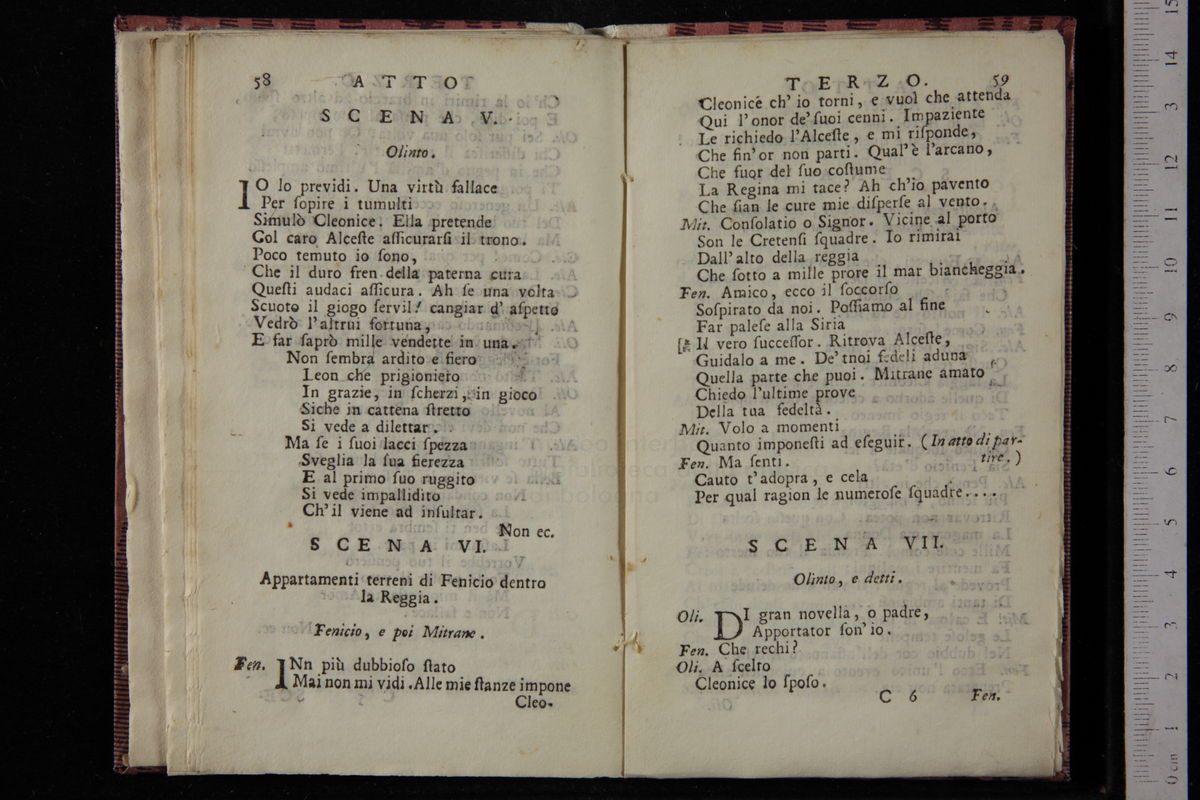 58 ATTO
SCENA V.
Olinto.
IO lo previdi. Una virtù fallace
Per ſopire i tumulti
Simulò Cleonice. Ella pretende
Col caro Alceſte aſſicurarſi il trono.
Poco temuto io ſono,
Che il duro fren della paterna cura
Queſti audaci aſſicura. Ah ſe una volta
Scuoto il giogo ſervil! cangiar d' aſpetto
Vedrò l'altrui fortuna,
E far ſaprò mille vendette in una.
Non ſembra ardito e fiero
Leon che prigioniero
In grazie, in ſcherzi, in gioco
Siche in cattena ſtretto
Si vede a dilettar.
Ma ſe i ſuoi lacci ſpezza
Sveglia la ſua fierezza
E al primo ſuo ruggito
Si vede impallidito
Ch'il viene ad inſultar.
Non ec.
SCENA VI.
Appartamenti terreni di Fenicio dentro
la Reggia.
Fenicio, e poi Mitrane.
Fen. INn più dubbioſo ſtato
Mai non mi vidi. Alle mie ſtanze impone
Cleo-
TERZO. 59
Cleonice ch' io torni, e vuol che attenda
Qui l'onor de' ſuoi cenni. Impaziente
Le richiedo l'Alceſte, e mi riſponde,
Che fin'or non parti. Qual'è l'arcano,
Che fuor del ſuo coſtume
La Regina mi tace? Ah ch'io pavento
Che ſian le cure mie diſperſe al vento.
Mit. Conſolatio o Signor. Vicine al porto
Son le Cretenſi ſquadre. Io rimirai
Dall' alto della reggia
Che ſotto a mille prore il mar biancheggia.
Fen. Amico, ecco il ſoccorſo
Soſpirato da noi. Poſſiamo al fine
Far paleſe alla Siria
Il vero ſucceſſor. Ritrova Alceſte,
Guidalo a me. De' tnoi fedeli aduna
Quella parte che puoi. Mitrane amato
Chiedo l'ultime prove
Della tua fedeltà.
Mit. Volo a momenti
Quanto imponeſti ad eſeguir. (In atto di par-
tire.)
Fen. Ma ſenti.
Cauto t'adopra, e cela
Per qual ragion le numeroſe ſquadre....
SCENA VII.
Olinto, e detti.
Oli. DI gran novella, o padre,
Apportator ſon' io.
Fen. Che rechi?
Oli. A ſcelto
Cleonice lo ſpoſo.
C 6 Fen.